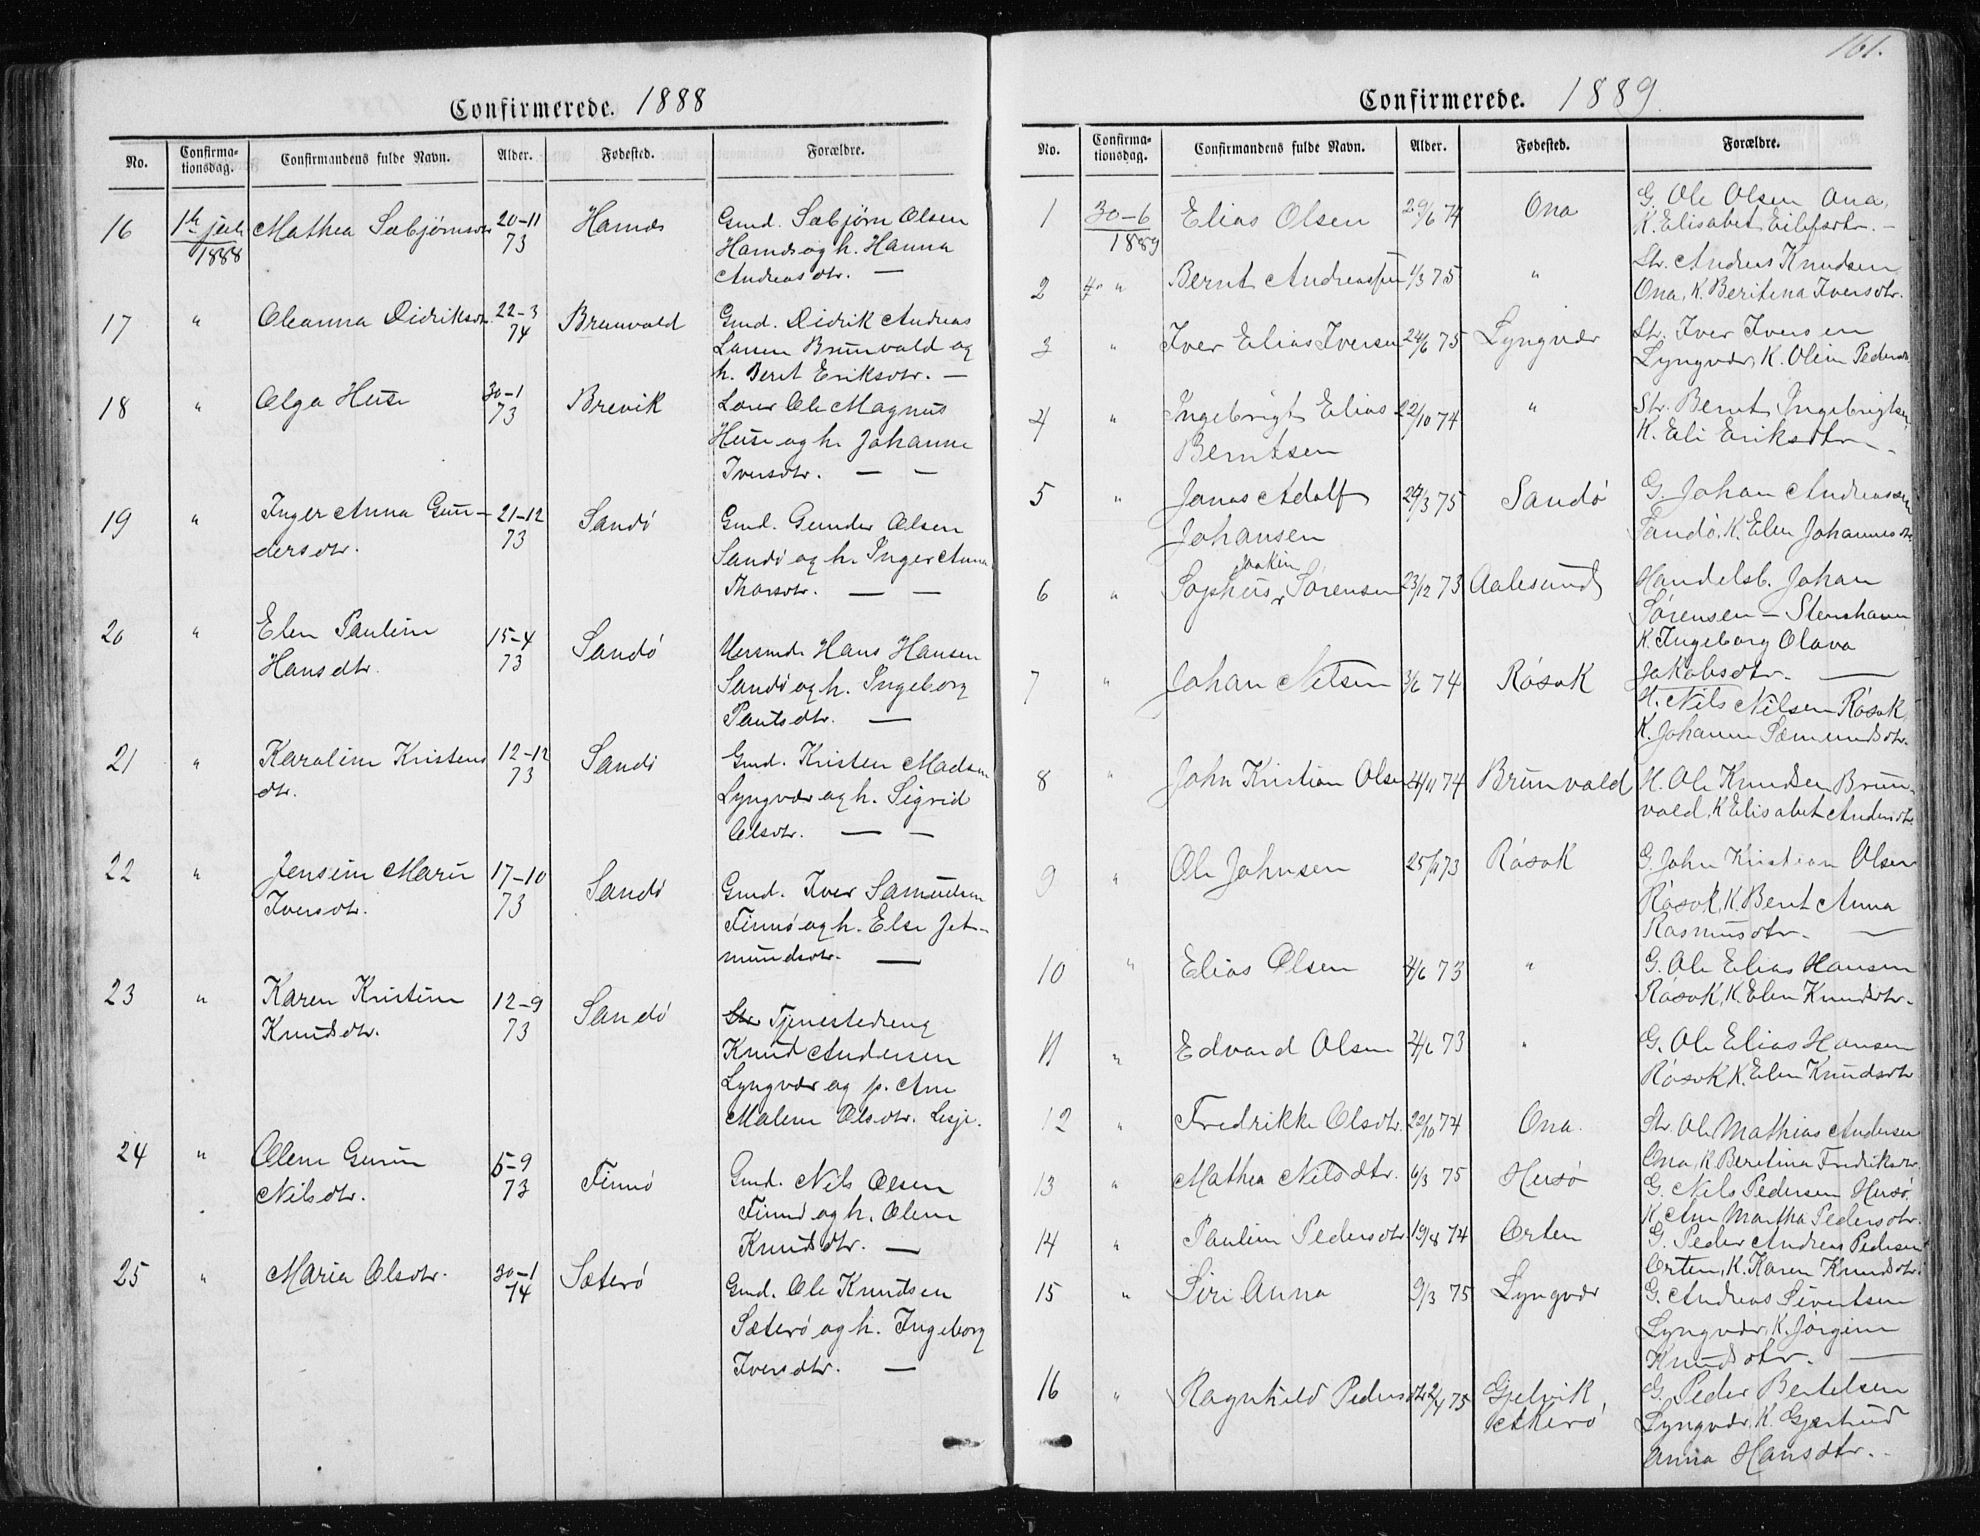 161.
Confirmerede. 1888
No. Confirma-tionsdag. Confirmandens fulde Navn. Alder. Fødested. Forældre.
16 1ste juli 1888 Mathea Sæbjørnsdtr 20-11 73 Gmd. Sæbjørn Olsen
og h. Hanna
Andreasdtr. —
17 " Oleanna Didriksdtr. 22-3 74 Brunvald Gmd. Didrik Andreas
Larsen Brunvald og
h. Beret Eriksdtr. —
18 " Olga Huse 30-1 73 Brevik Lærer Ole Magnus
Huse og h. Johanne
Iversdtr. — —
19 " Inger Anna Gun-
dersdtr. 21-12 73 Sandø Gmd. Gunder Olsen
Sandø og h. Inger Anna
Thorsdtr. — —
20 " Elen Pauline
Hansdtr. 15-4 73 Sandø Hans Hansen
Sandø og h. Ingeborg
Paulsdtr. —
21 " Karoline Kristens
dtr. 12-12 73 Sandø Gmd. Kristen Madsen
Lyngvær og h. Sigrid
Olsdtr. — —
22 " Jensine Marie
Iversdtr. 17-10 73 Sandø Gmd. Iver Samuelsen
Finnø og h. Else Jet-
mundsdtr. —
23 " Karen Kristine
Knudsdtr. 12-9 73 Sandø Str Tjenestedreng
Knud Andersen
Lyngvær og p. Ane
Malene Olsdtr.
24 " Olene Gurine
Nilsdtr. 5-9 73 Finnø Gmd. Nils Olsen
Finnø og h. Olene
Knudsdtr. —
25 " Maria Olsdtr. 30-1 74 Sæterø Gmd. Ole Knudsen
Sæterø og h. Ingeborg
Iversdtr. —
Confirmerede. 1889.
No. Confirma-tionsdag. Confirmandens fulde Navn. Alder. Fødested. Forældre.
1 30-6 1889 Elias Olsen 29/6 74 Ona G. Ole Olsen Ona,
K. Elisabet Eilefsdtr. —
2 " Bernt Andreassen 1/3 75 " Str. Andreas Knudsen
Ona, K. Beritina Iversdtr.
3 " Iver Elias Iversen 24/6 75 Lyngvær Str. Iver Iversen
Lyngvær, K. Oline Pedersdtr
4 " Ingebrigt Elias
Berntsen 22/10 74 " Str. Bernt Ingebrigtsen
K. Eli Eriksdtr —
5 " Jonas Adolf
Johansen 24/3 75 Sandø G. Johan Andreassen
Sandø, K. Elen Johannesdtr
6 " Sophus Joakim Sørensen 23/12 73 Aalesund Handelsb. Johan
Sørensen — Stenshavn
K. Ingeborg Olava
Jakobsdtr. —
7 " Johan Nilsen 3/6 74 Røsok H. Nils Nilsen Røsok,
K. Johanne Sæmundsdtr.
8 " John Kristian Olsen 24/11 74 Brunvald H. Ole Knudsen Brun-
vald, K. Elisabet Andersdtr.
9 " Ole Johnsen 25/11 73 Røsok G. John Kristian Olsen
Røsok, K. Berit Anna
Rasmusdtr. —
10 " Elias Olsen 4/6 73 " G. Ole Elias Hansen
Røsok, K. Elen Knudsdtr.
11 " Edvard Olsen 4/6 73 " G. Ole Elias Hansen
Røsok K. Elen Knudsdtr
12 " Fredrikke Olsdtr. 22/10 74 Ona. Str. Ole Mathias Andersen
Ona, K. Beretina Fredriksdtr.
13 " Mathea Nilsdtr. 6/3 75 Husø G. Nils Pedersen Husø,
K. Ane Martha Pedersdtr.
14 " Pauline Pedersdtr 19/8 74 Orten G. Peder Andreas Pedersen
Orten, K. Karen Knudsdtr.
15 " Siri Anna 9/3 75 Lyngvær G. Andreas Sivertsen
Lyngvær, K. Jørgine
Knudsdtr. —
16 " Ragnhild Pedersdtr 2/4 75 Gjelvik
Akerø G. Peder Bertelsen
Lyngvær, K. Gjertrud
Anna Hansdtr. —